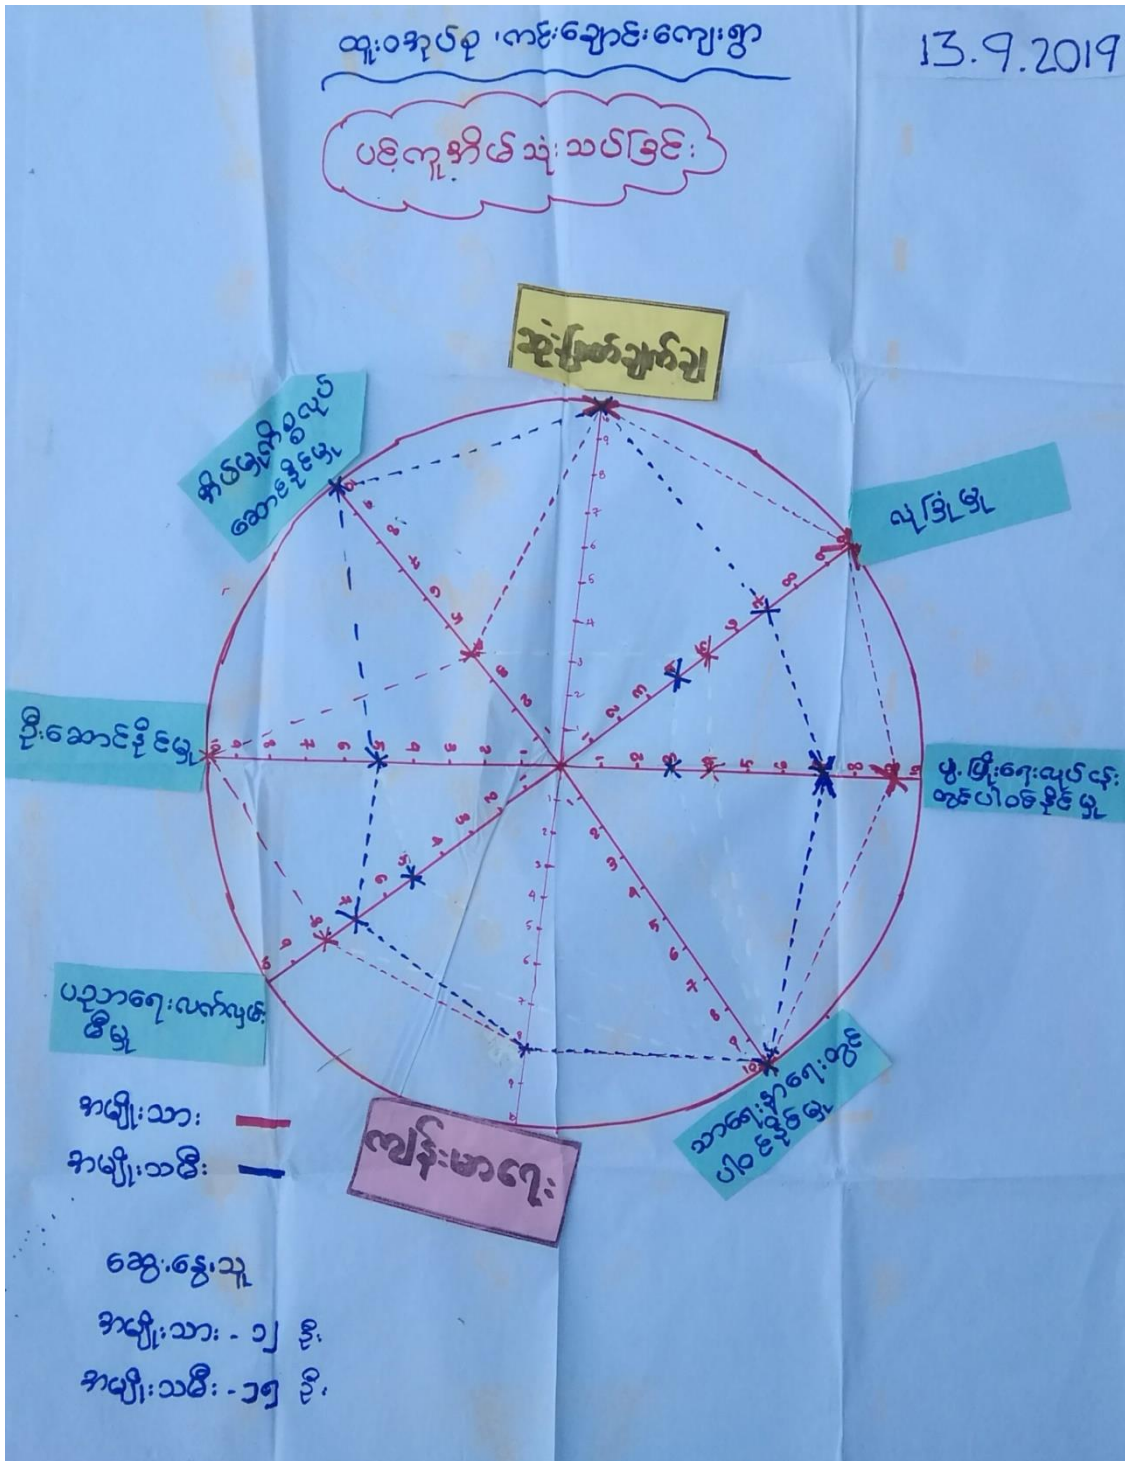 ထူးဝအုပ်စု ၊ ကင်းချောင်းကျေးရွာ
13.9.2019
ပင့်ကူအိမ်သုံးသပ်ခြင်း
ဆုံးဖြတ်ချက်ချ
အိမ်မှုကိစ္စလုပ်
ဆောင်နိုင်မှု
လုံခြုံမှု
ဦးဆောင်နိုင်မှု
ဖွံ့ဖြိုးရေးလုပ်ငန်း
တွင်ပါဝင်နိုင်မှု
ပညာရေးလက်လှမ်း
မီမှု
သာရေးနာရေးတွင်
ပါဝင်နိုင်မှု
ကျန်းမာရေး
အမျိုးသား
အမျိုးသမီး
ဆွေးနွေးသူ
အမျိုးသား - ၁၂ ဦး
အမျိုးသမီး - ၁၅ ဦး